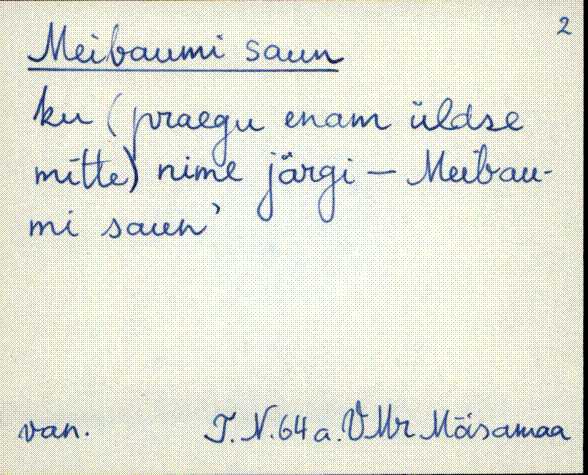 2
Meibaumi saun
ku (praegu enam üldse
mitte) nime järgi — Meibau-
mi saun’
van. T. N. 64 a. VMr Mõisamaa